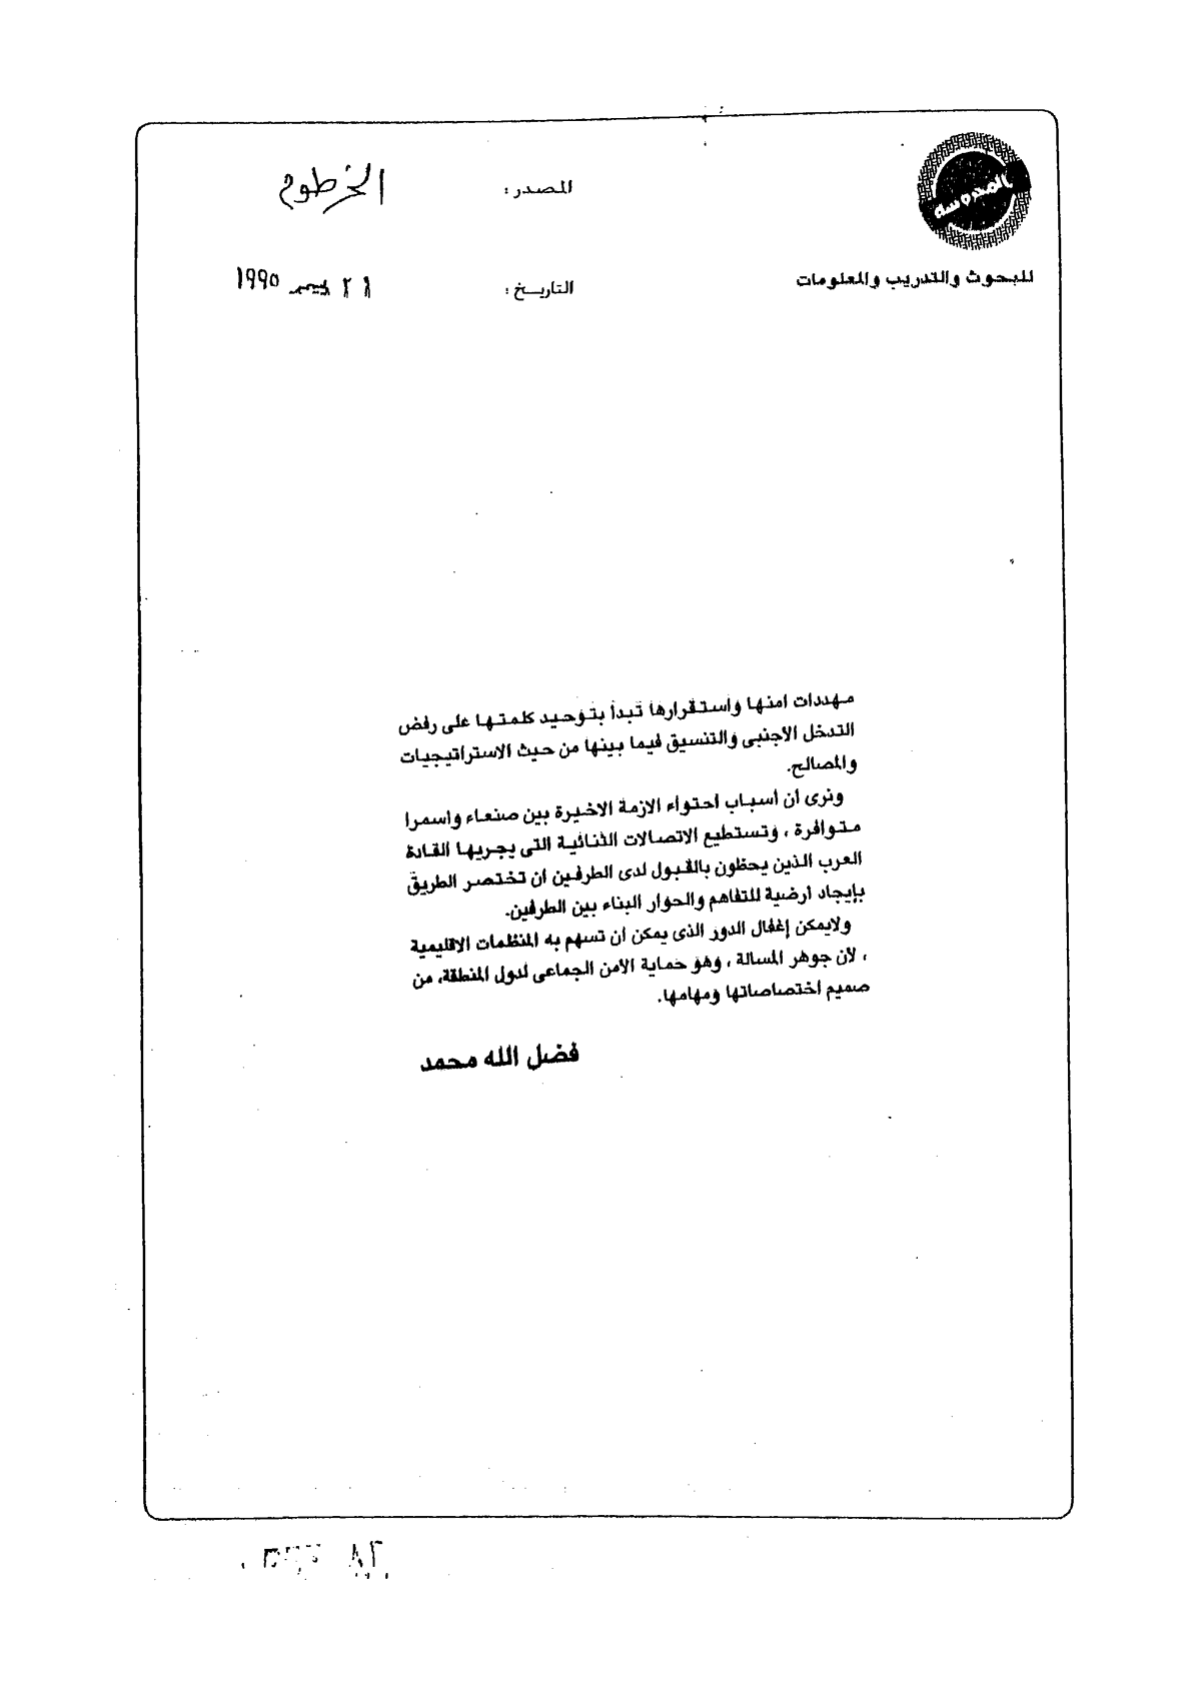 المحروسة
للبحوث والتدريب والمعلومات
المصدر : الخرطوم
التاريخ : ٢١ ديسمبر ١٩٩٥
مهددات امنها واستقرارها تبدأ بتوحيد كلمتها على رفض
التدخل الاجنبى والتنسيق فيما بينها من حيث الاستراتيجيات
والمصالح.
ونرى ان اسباب احتواء الازمة الاخيرة بين صنعاء واسمرا
متوافرة ، وتستطيع الاتصالات الثنائية التى يجريها القادة
العرب الذين يحظون بالقبول لدى الطرفين ان تختصر الطريق
بإيجاد ارضية للتفاهم والحوار البناء بين الطرفين.
ولايمكن إغفال الدور الذى يمكن ان تسهم به المنظمات الاقليمية
، لان جوهر المسالة ، وهو حماية الامن الجماعى لدول المنطقة، من
صميم اختصاصاتها ومهامها.
فضل الله محمد